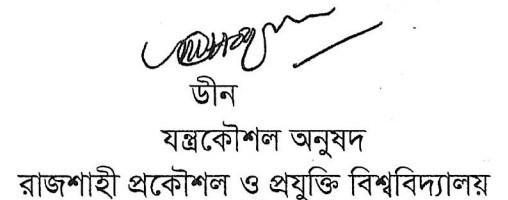 ডীন
যন্ত্রকৌশল অনুষদ
রাজশাহী প্রকৌশল ও প্রযুক্তি বিশ্ববিদ্যালয়